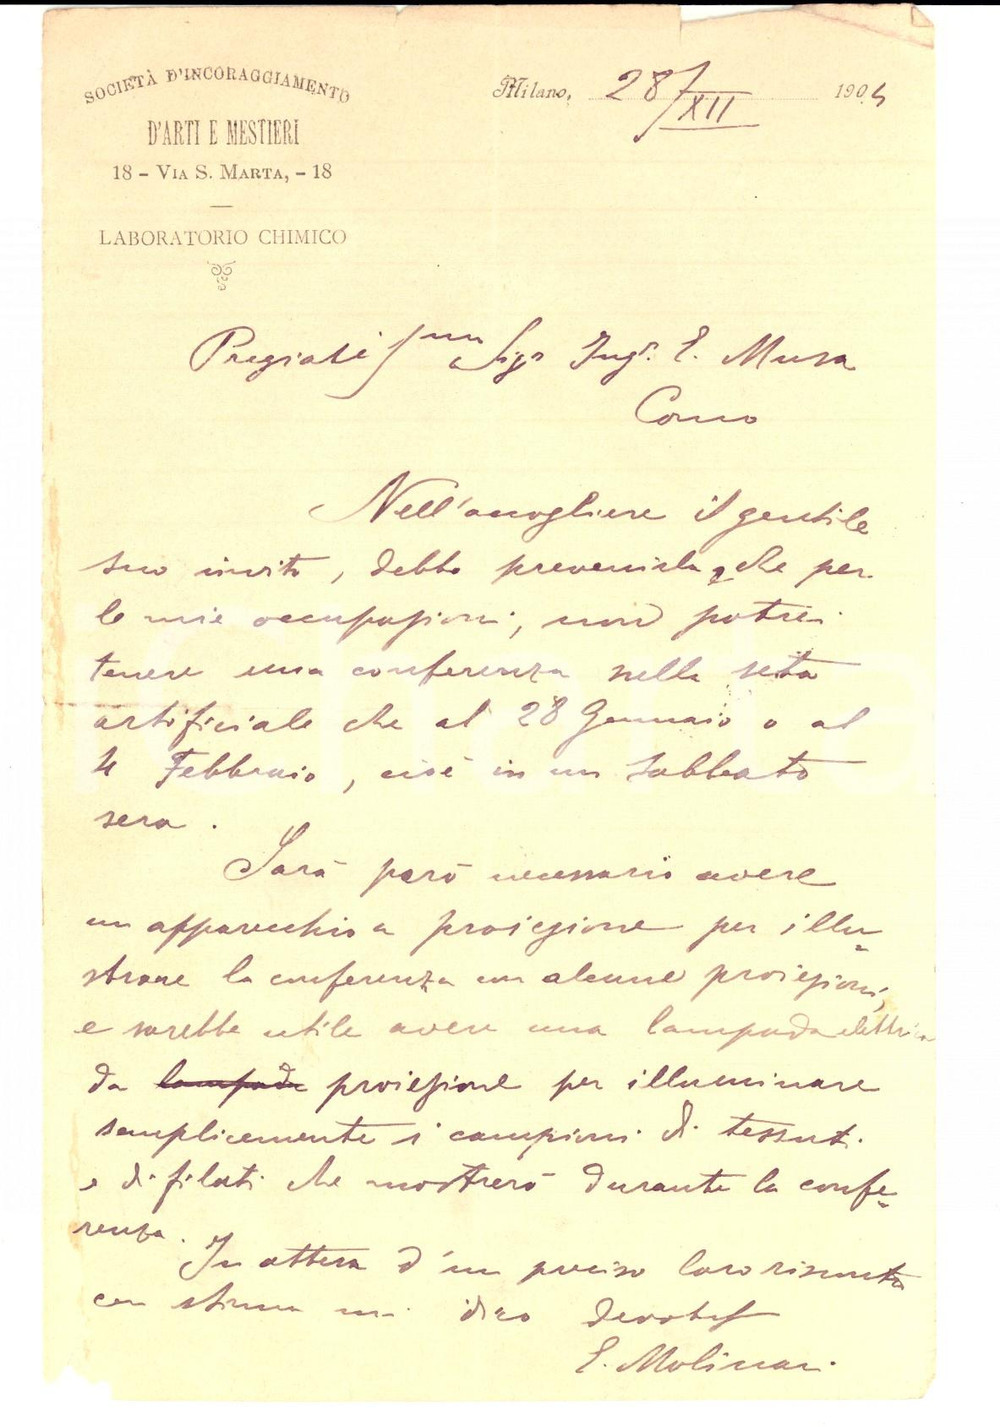 SOCIETÀ D'INCORAGGIAMENTO
D'ARTI E MESTIERI
18 - VIA S. MARTA, - 18
LABORATORIO CHIMICO
Milano, 28/XII 1904
Pregiatissimo Sigr Ingr. E. Musa
Como
Nell'accogliere il gentile
suo invito, debbo prevenirla che per
le mie occupazioni, non potrei
tenere una conferenza nella seta
artificiale che al 28 Gennaio o al
4 Febbraio, cioè in un Sabbato
sera.
Sarà però necessario avere
un apparecchio a proiezione per illu-
strare la conferenza con alcune proiezioni,
e sarebbe utile avere una lampada elettrica
da lampada proiezione per illuminare
semplicemente i campioni di tessuti
e di filati che mostrerò durante la confe-
renza.
In attesa d'un preciso loro riscontro
con stima mi dico devotis
E. Molinari